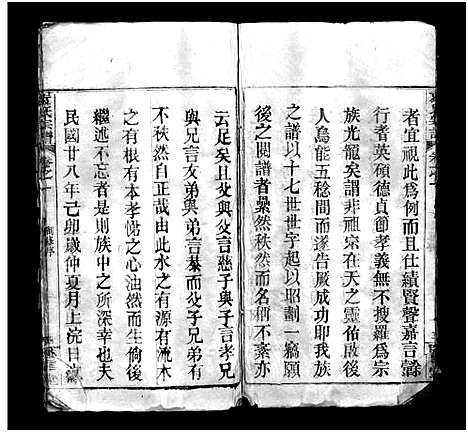 者宜視此爲例而且仕績賢聲嘉言懿
行者英碩德貞節孝義無不搜羅爲宗
族光龍矣謂非祖宗在天之靈佑啟後
人烏能五稔間而遂告嚴成功即我族
之譜以十七世世字起以昭劃一竊願
後之閱譜者纍然秩然而名稱不紊亦
云足矣且父與父言慈子與子言孝兄
與兄言友弟與弟言恭而父子兄弟有
不秩然自正哉由此水之有源有流木
之有根有本孝悌之心油然而生倘後
繼述不忘者是則族中之所深幸也夫
民國廿八年己卯歲仲夏月上浣日
卷之一